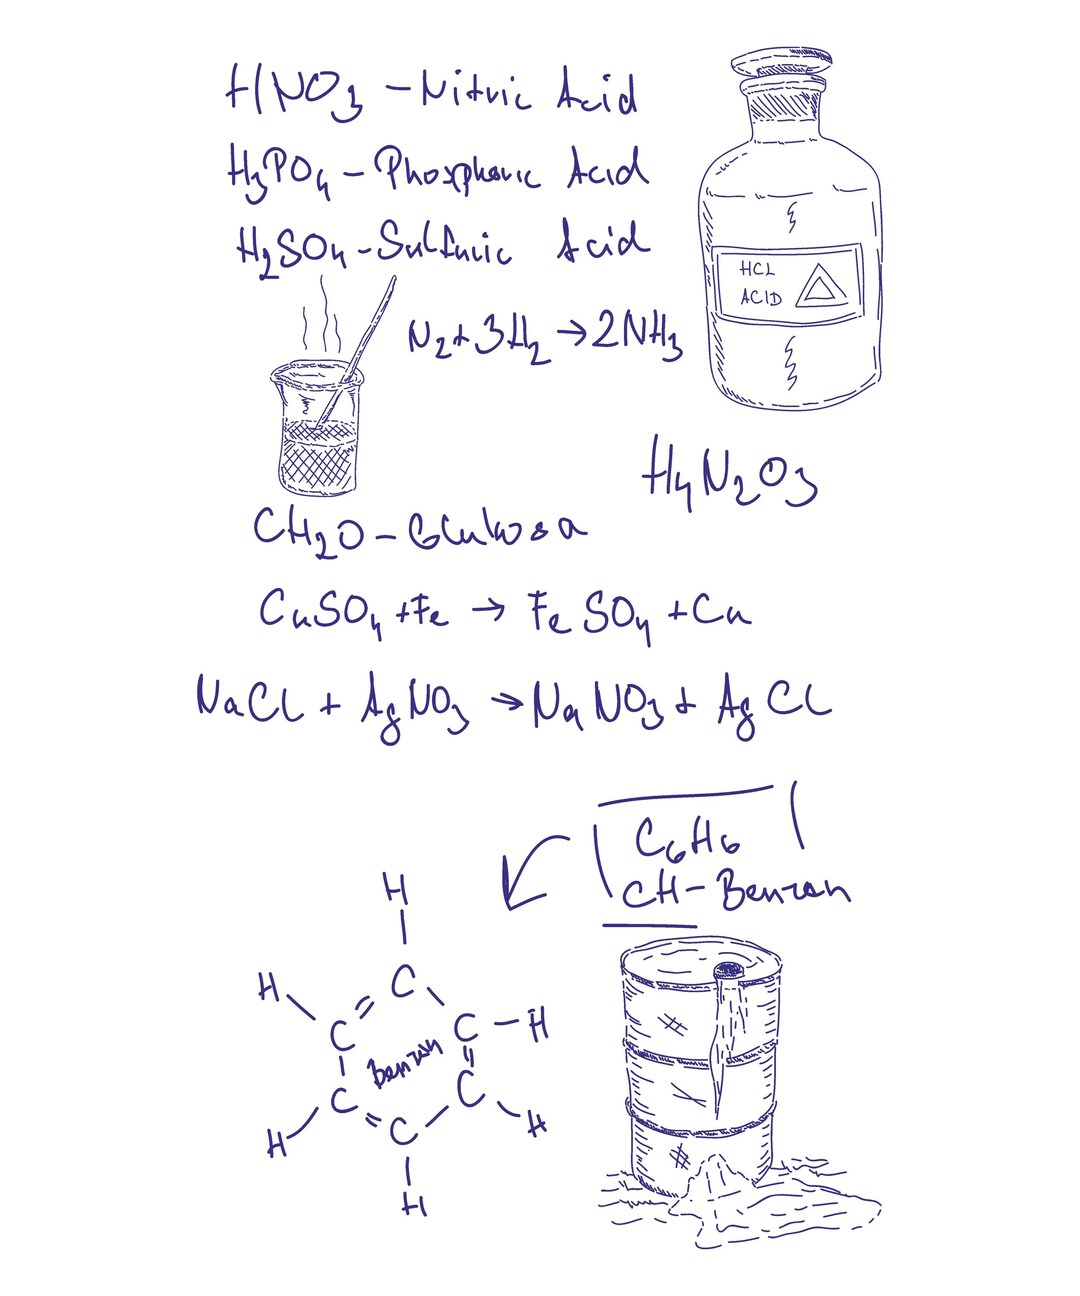 HNO3 - Nitric Acid
H3PO4 - Phosphoric Acid
H2SO4 - Sulfuric Acid
HCL
ACID
N2+3H2 → 2NH3
H4N2O3
CH2O - Glukosa
CuSO4 + Fe → FeSO4 + Cu
NaCl + AgNO3 → NaNO3 + AgCl
C6H6
CH - Benzen
H
H C
C C - H
Benzen
C C
H C H
H